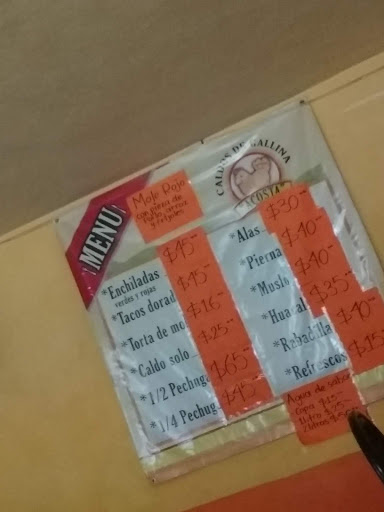 ¡MENU!
Mole Rojo
con pieza de
Pollo, arroz
y frijoles
CALDOS DE GALLINA
ACOSTA
*Enchiladas $45
verdes y rojas
*Tacos dorad $45
*Torta de mo $16
*Caldo solo $25
*1/2 Pechug $65
*1/4 Pechug $45
*Alas $30
*Pierna $40
*Muslo $40
*Huacal $35
*Rabadilla $40
*Refrescos $15
Agua de sabor
Copa $15
Litro $25
2 litros